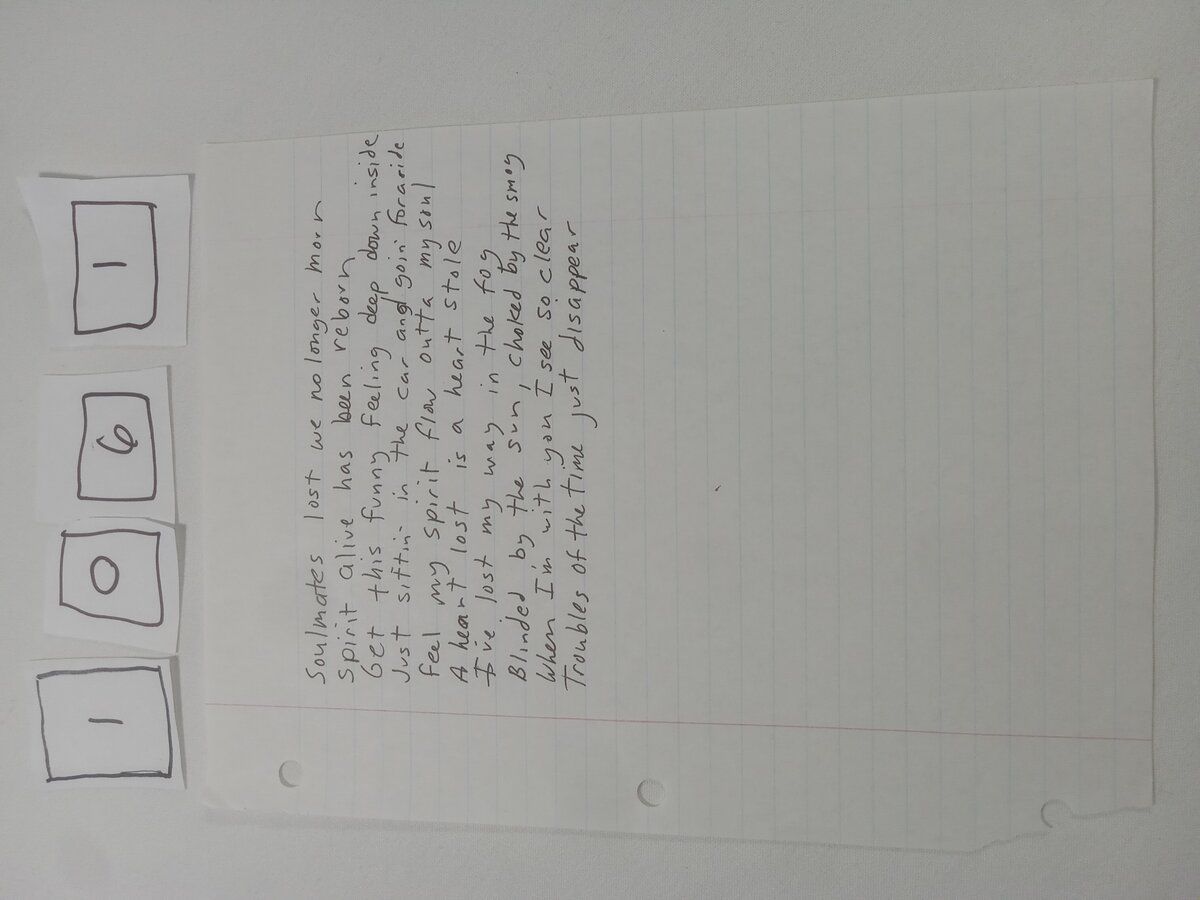 1 0 6 1
Soulmates lost we no longer morn
Spirit alive has been reborn
Get this funny feeling deep down inside
Just sittin' in the car and goin' for a ride
Feel my spirit flow outta my soul
A heart lost is a heart stole
I've lost my way in the fog
Blinded by the sun, choked by the smog
When I'm with you I see so clear
Troubles of the time just disappear